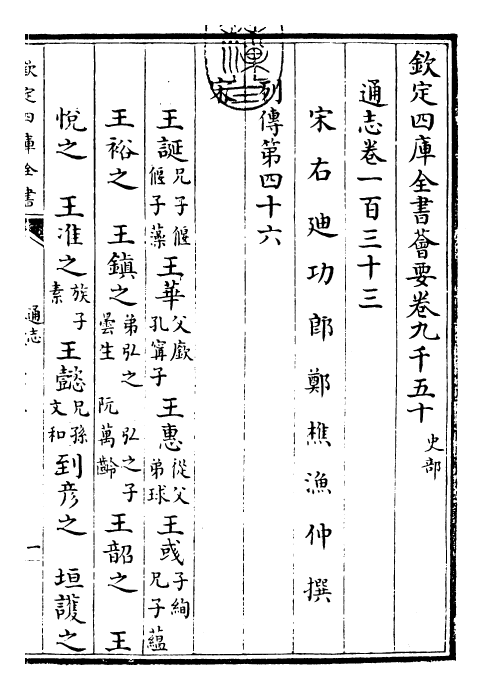 欽定四庫全書薈要卷九千五十 史部
通志卷一百三十三
宋右廸功郎鄭樵漁仲撰
列傳第四十六
宋
王誕 兄子偃 偃子藻 王華 父廞 孔甯子 王惠 從父弟球 王彧 子絢 兄子蘊
王裕之 王鎮之 弟弘之 曇生 弘之子 阮萬齡 王韶之 王
悅之 王准之 族子素 王懿 兄孫文和 到彦之 垣護之
欽定四庫全書
通志
一